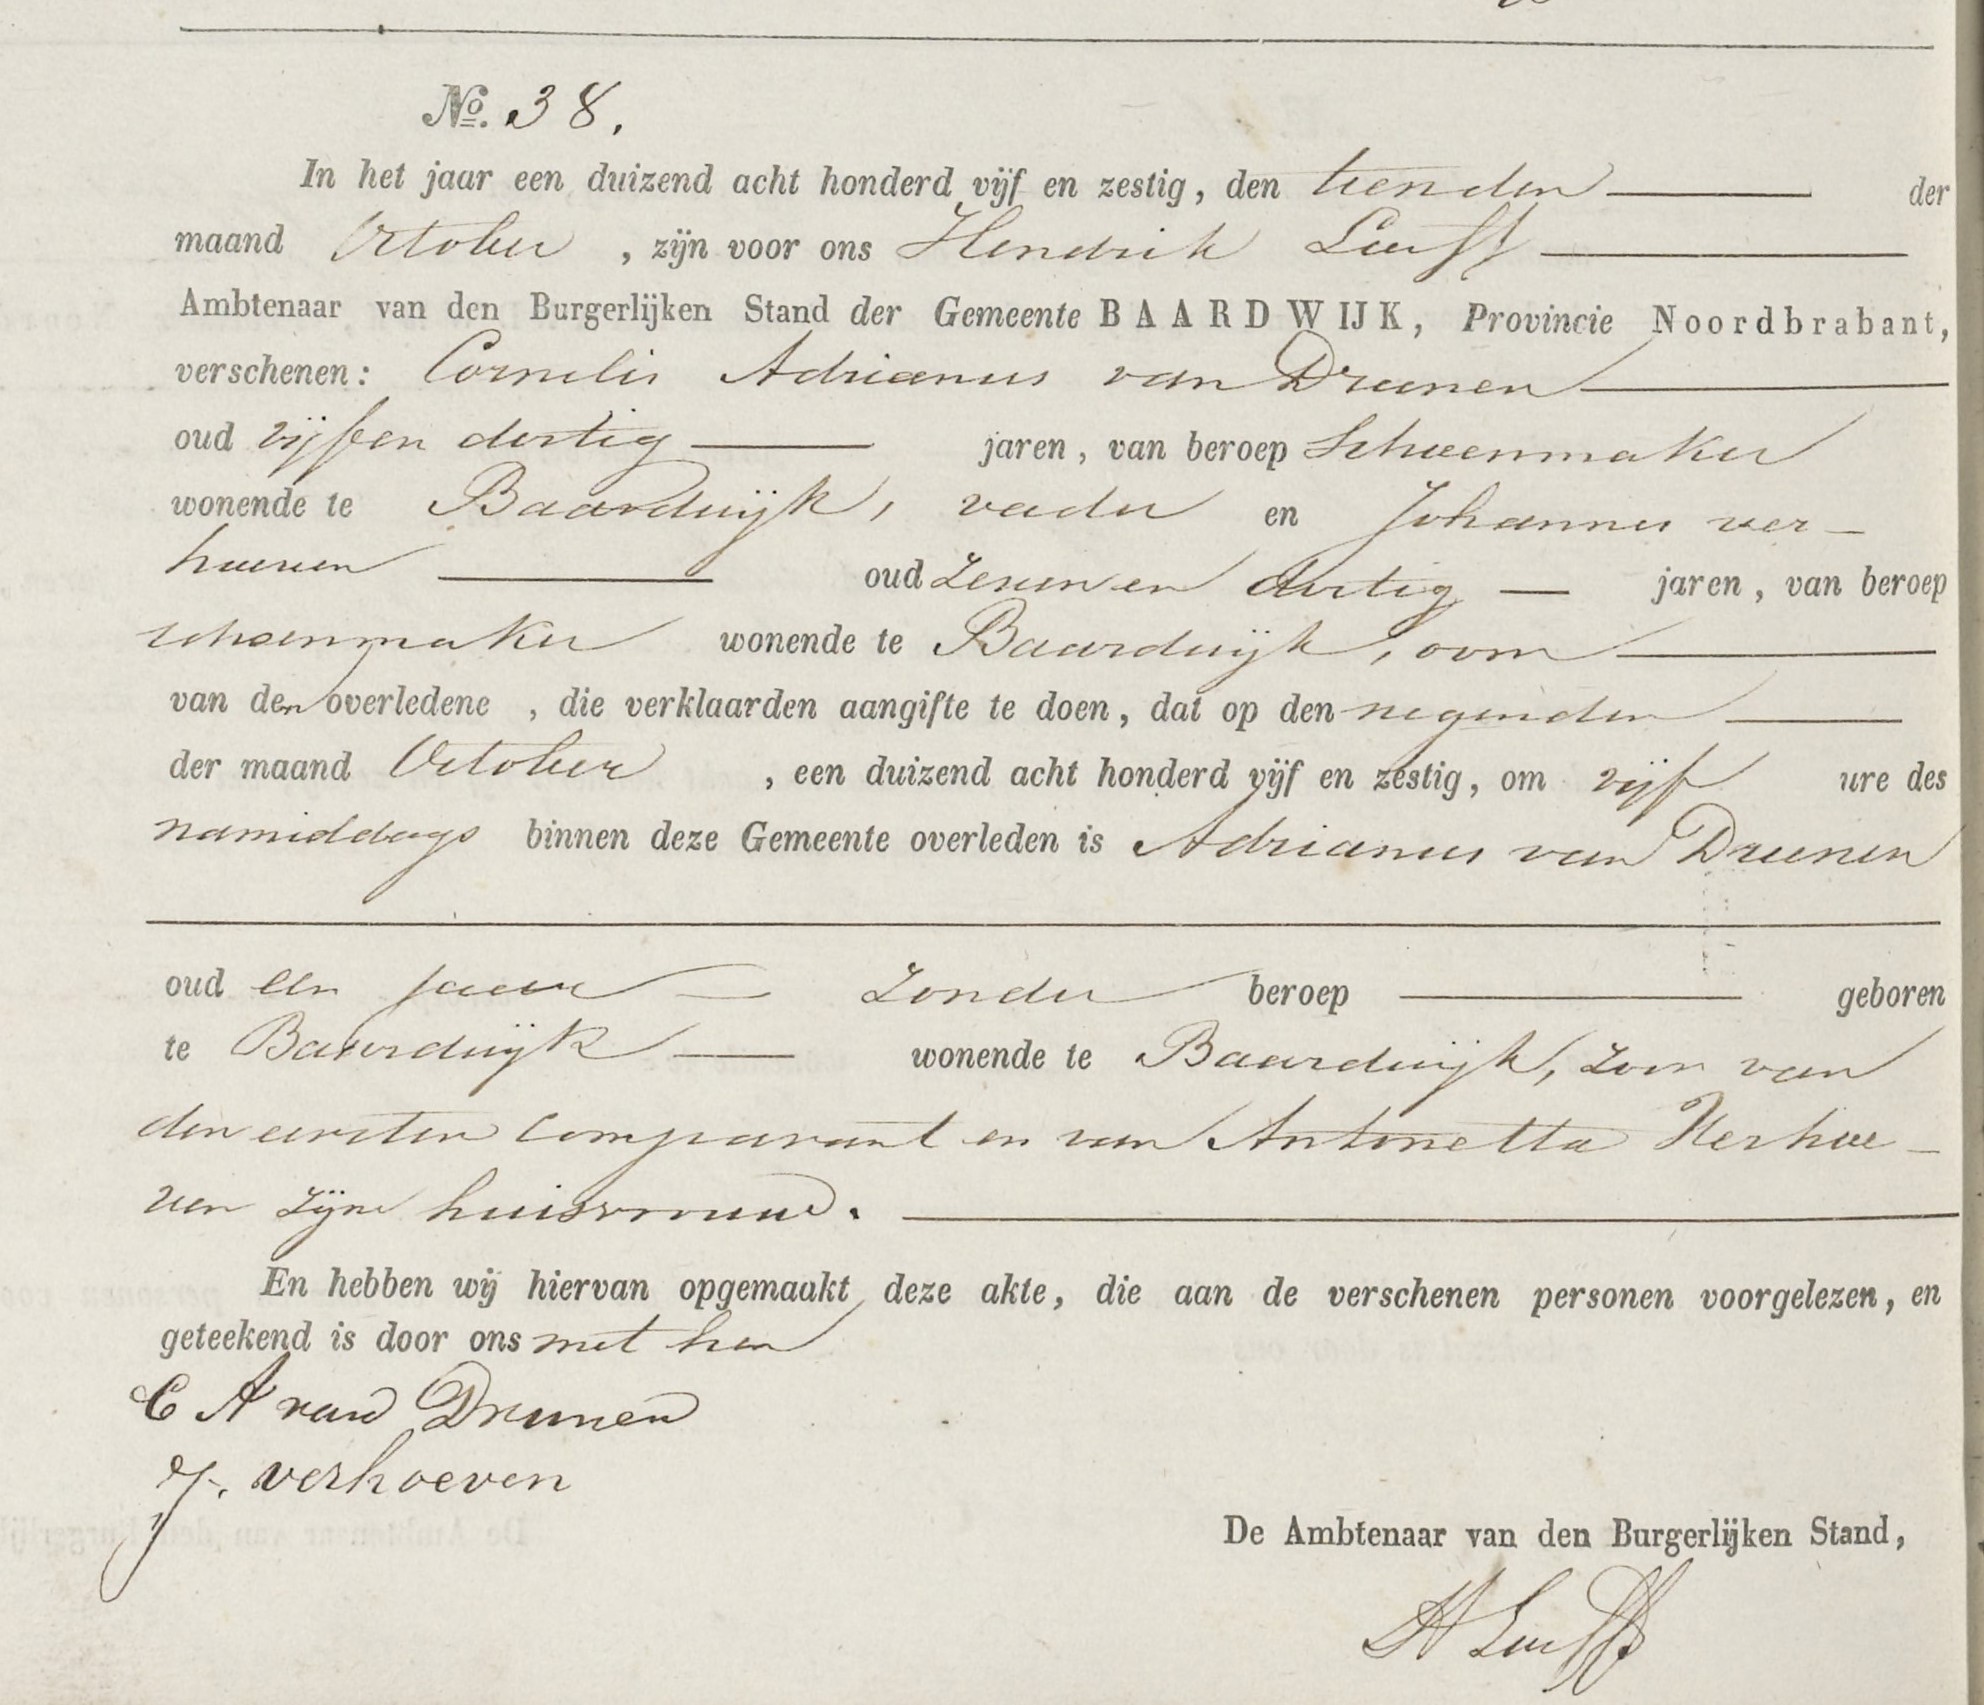 No. 38.
In het jaar een duizend acht honderd vijf en zestig, den tienden der
maand October , zijn voor ons Hendrik
Ambtenaar van den Burgerlijken Stand der Gemeente BAARDWIJK, Provincie Noordbrabant,
verschenen: Cornelis Adrianus van Drunen
oud vijf en dertig jaren, van beroep Schoenmaker
wonende te Baardwijk, vader en Johannes ver-
hoeven oud zeven en dertig jaren, van beroep
schoenmaker wonende te Baardwijk, oom
van den overledene , die verklaarden aangifte te doen, dat op den negenden
der maand October , een duizend acht honderd vijf en zestig, om vijf ure des
namiddags binnen deze Gemeente overleden is Adrianus van Drunen
oud een jaar zonder beroep geboren
te Baardwijk wonende te Baardwijk, zoon van
den eersten Comparant en van Antonetta Verhoe-
ven zijne huisvrouw.
En hebben wij hiervan opgemaakt deze akte, die aan de verschenen personen voorgelezen, en
geteekend is door ons met hen
C A van Drunen
J. verhoeven
De Ambtenaar van den Burgerlijken Stand,
H